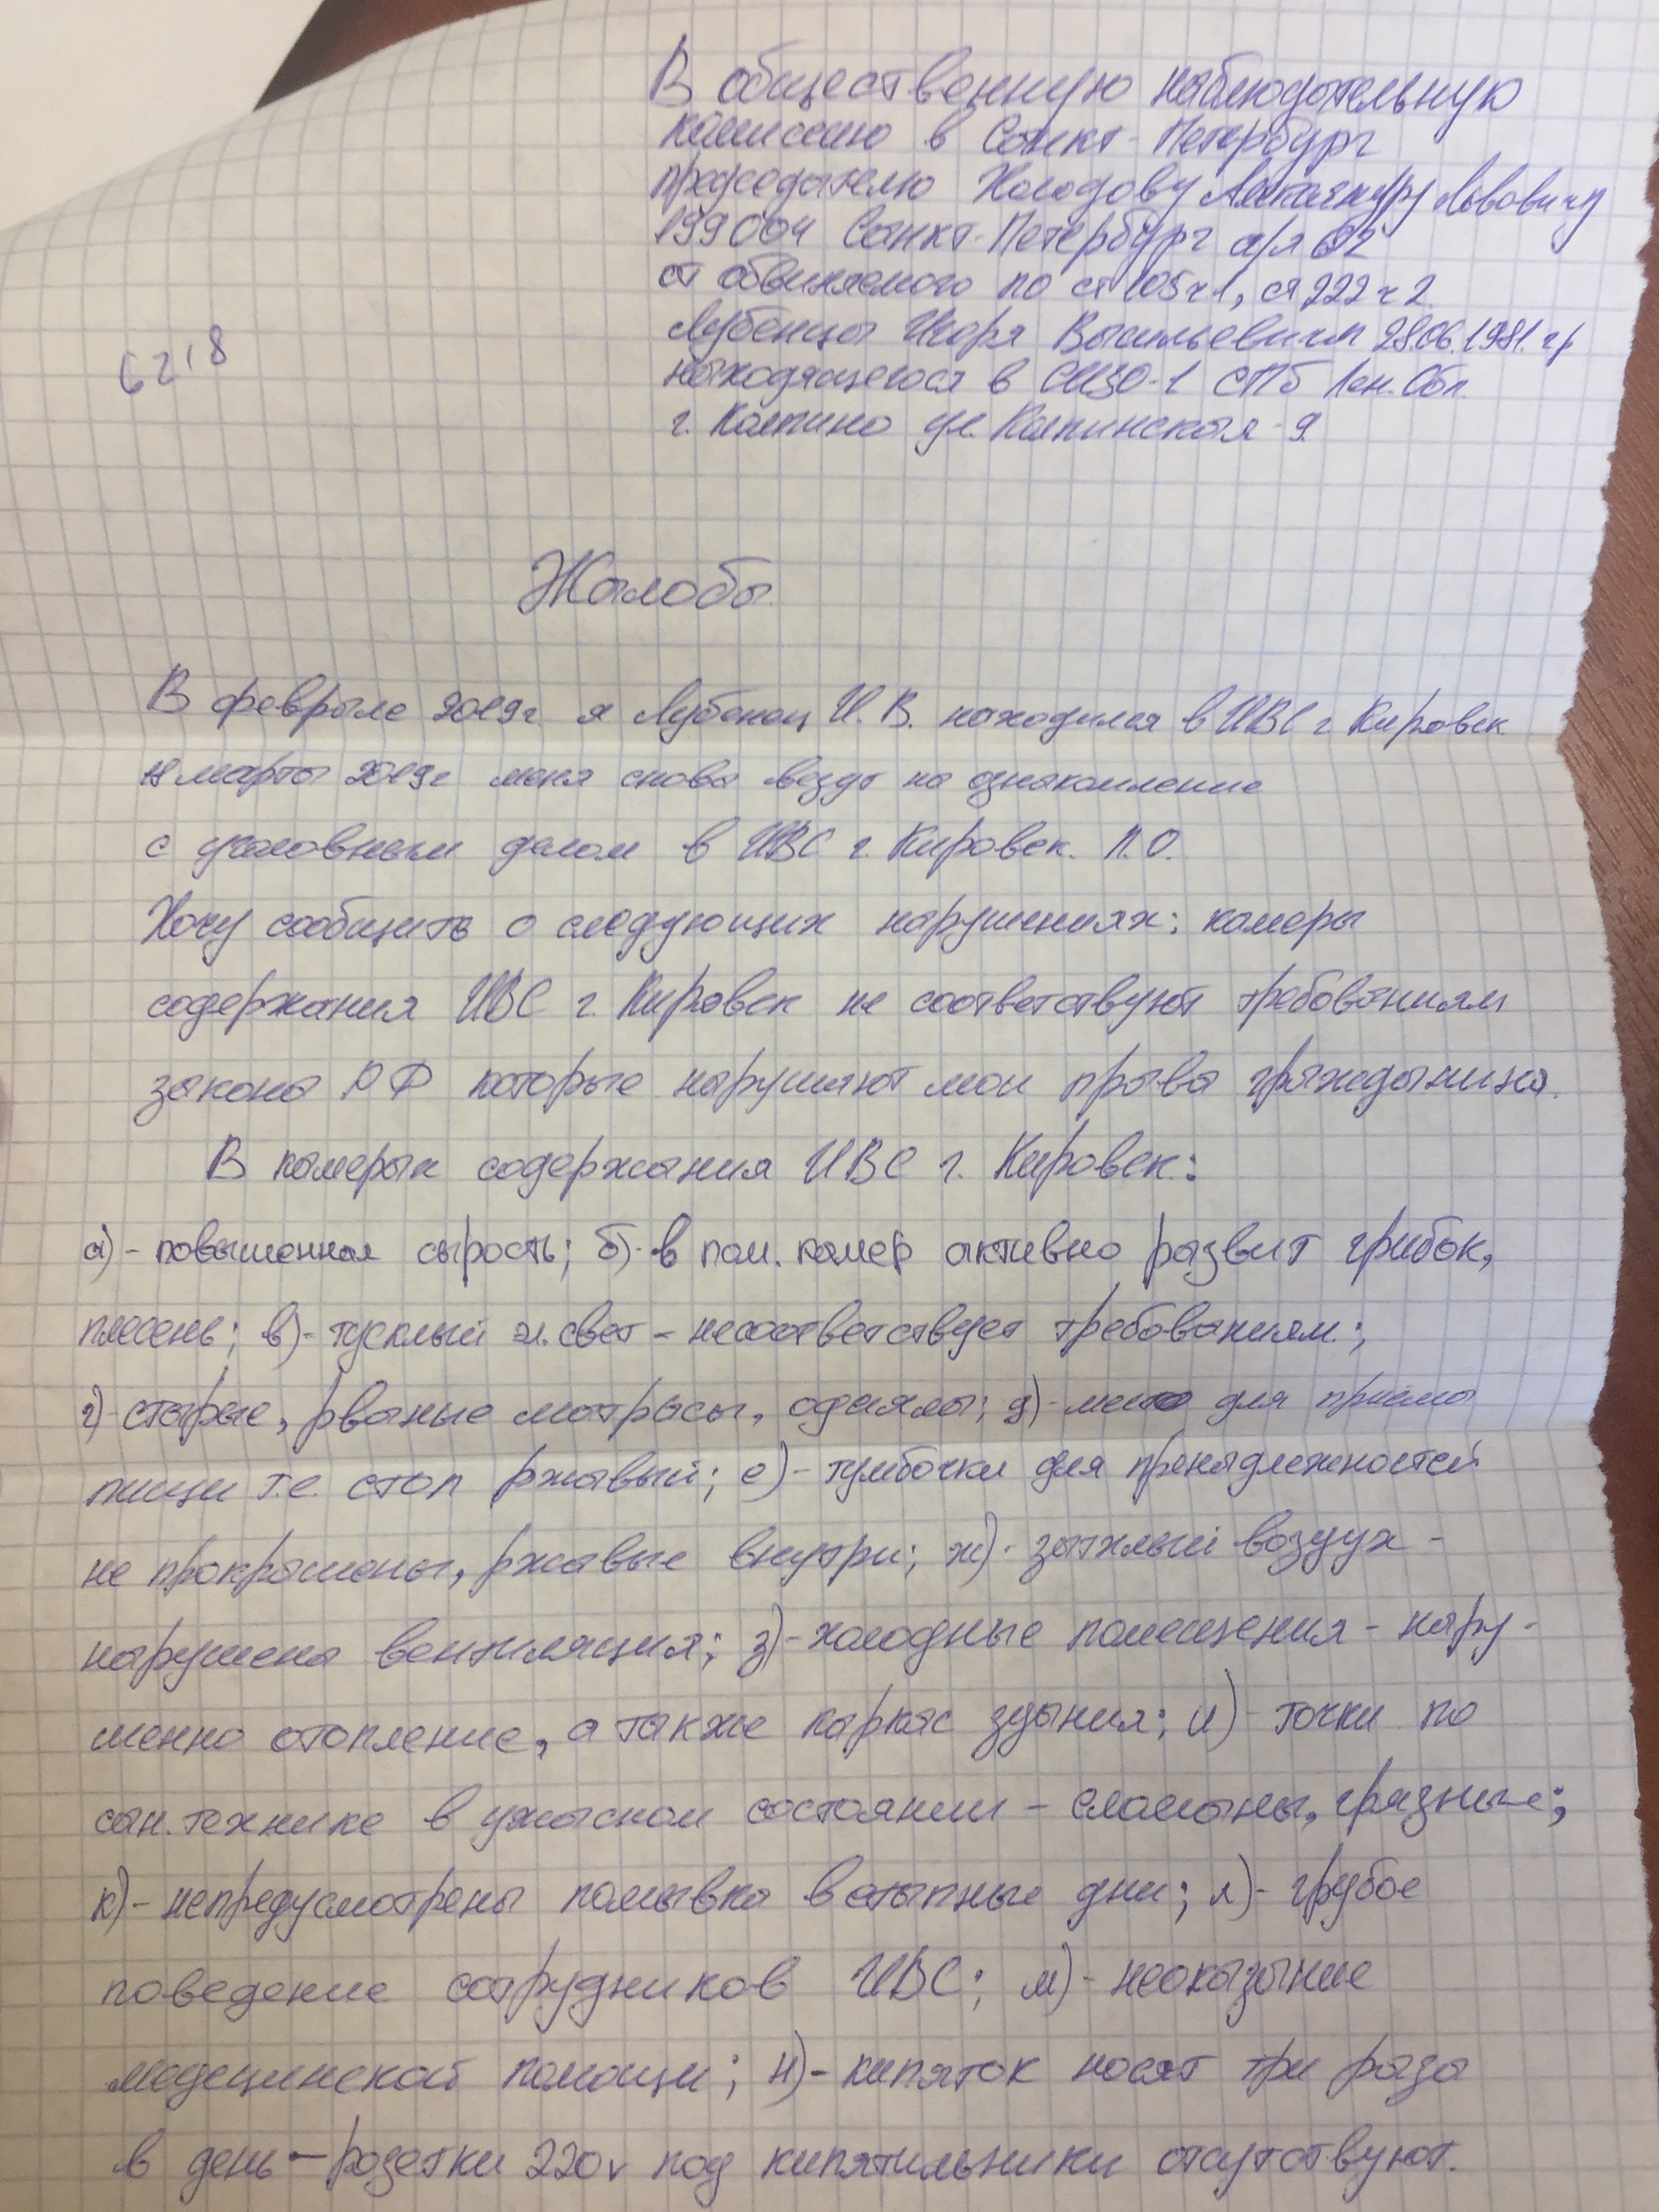 В общественную наблюдательную
комиссию в Санкт-Петербург
председателю Холодову Александру Львовичу
199004 Санкт-Петербург а/я 62
от обвиняемого по ст 105 ч 1, ст 222 ч 2.
Лубенца Игоря Васильевича 28.06.1981. гр
находящегося в СИЗО-1 СПб Лен. Обл.
г. Колпино ул. Колпинская-9
62,8
Жалоба.
В феврале 2019г я Лубенец И. В. находился в ИВС г Кировск
марта 2019г меня снова везут на ознакомление
с уголовным делом в ИВС г. Кировск. Л.О.
Хочу сообщить о следующих нарушениях: камеры
содержания ИВС г. Кировск не соответствуют требованиям
закона РФ которые нарушают мои права гражданина.
В камерах содержания ИВС г. Кировск:
а)- повышенная сырость; б)- в пом. камер активно развит грибок,
плесень; в)- тусклый эл. свет - несоответствует требованиям.;
г)- старые, рваные матрасы, одеяла; д)- место для приёма
пищи т.е. стол ржавый; е)- тумбочки для пренадлежностей
не прокрашены, ржавые внутри; ж)- затхлый воздух -
нарушена вентиляция; з)- холодные помещения - нару-
шенно отопление, а также каркас здания; и)- точки по
сан. технике в ужасном состоянии - сломаны, грязные;
к)- непредусмотрены помывка в этапные дни; л)- грубое
поведение сотрудников ИВС; м)- неоказание
медецинской помощи; н)- кипяток носят три раза
в день - розетки 220v под кипятильники отсутствуют.